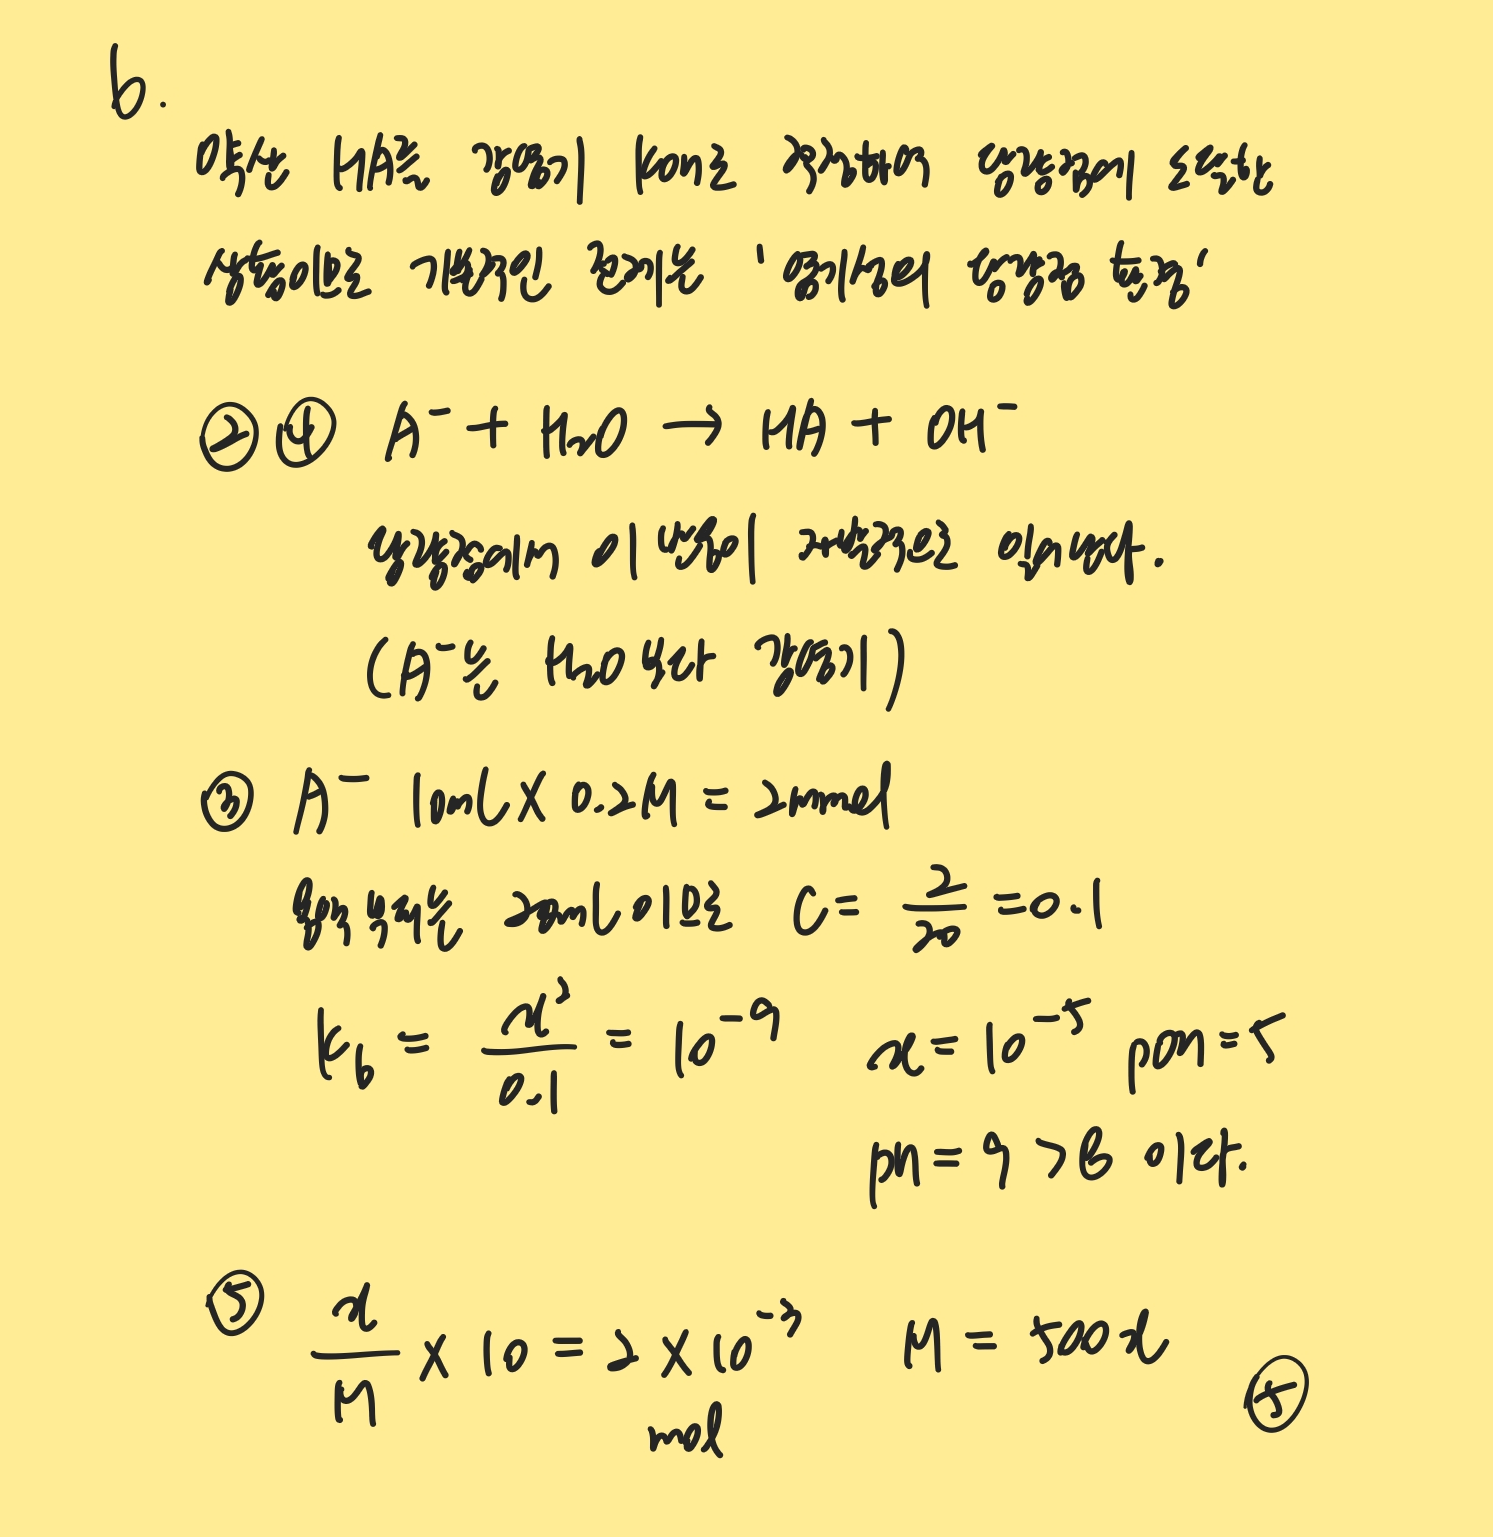 6.
약산 HA를 강염기 KOH로 적정하여 당량점에 도달한
상황이므로 기본적인 전제는 '염기성의 당량점 환경'
② ④ A⁻ + H₂O → HA + OH⁻
당량점에서 이 반응이 자발적으로 일어난다.
(A⁻는 H₂O보다 강염기)
③ A⁻ 10mL X 0.2M = 2mmol
용액 부피는 20mL이므로 C = 2/20 = 0.1
Kb = x²/0.1 = 10⁻⁹ x = 10⁻⁵ pOH = 5
pH = 9 > 8 이다.
⑤ x/M X 10 = 2 X 10⁻³ M = 500x
mol
⑤